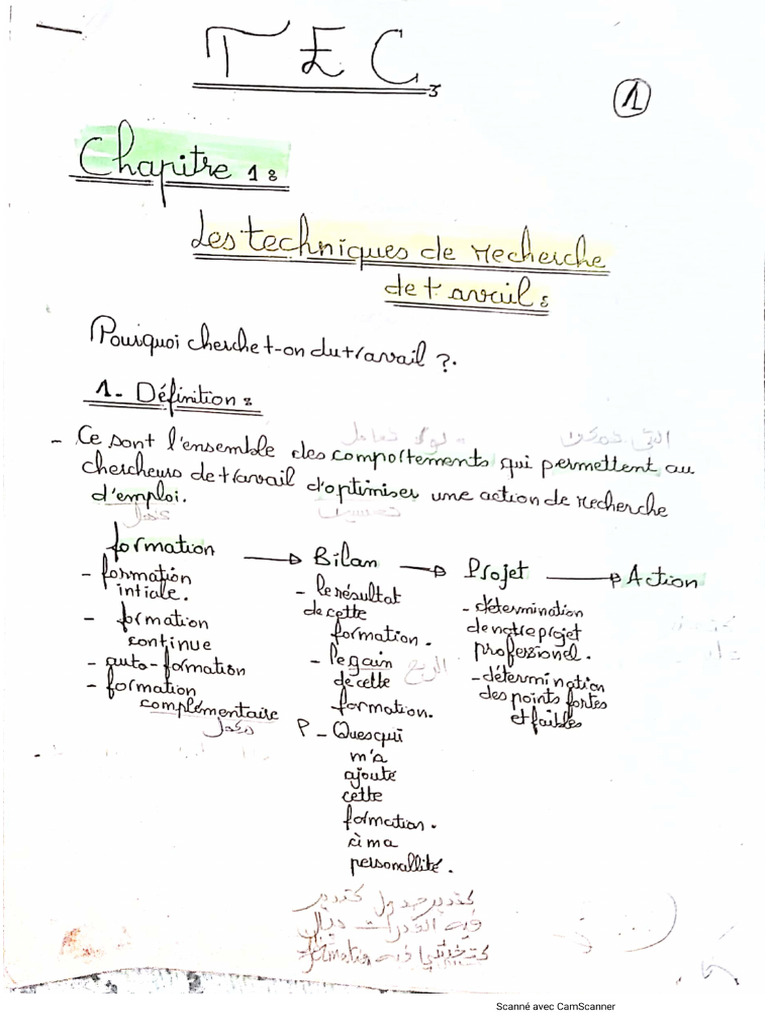 TEC
1
Chapitre 1:
Les techniques de recherche
de travail:
Pourquoi cherche t-on du travail ?.
1- Définition:
التي تمكن
- Ce sont l'ensemble des comportements qui permettent au
chercheurs de travail d'optimiser une action de recherche
d'emploi.
formation → Bilan → Projet → Action
- formation
intiale.
- formation
continue
- auto-formation
- formation
complémentaire
مكمل
- le résultat
de cette
formation.
- le gain الربح
de cette
formation.
P - Quesqui
m'a
ajouté
cette
formation.
à ma
personallité.
- détermination
de notre projet
professionel.
- détermination
des points fortes
et faibles
كندير جدول كندير
فيه القدرات ديالي
formation
Scanné avec CamScanner